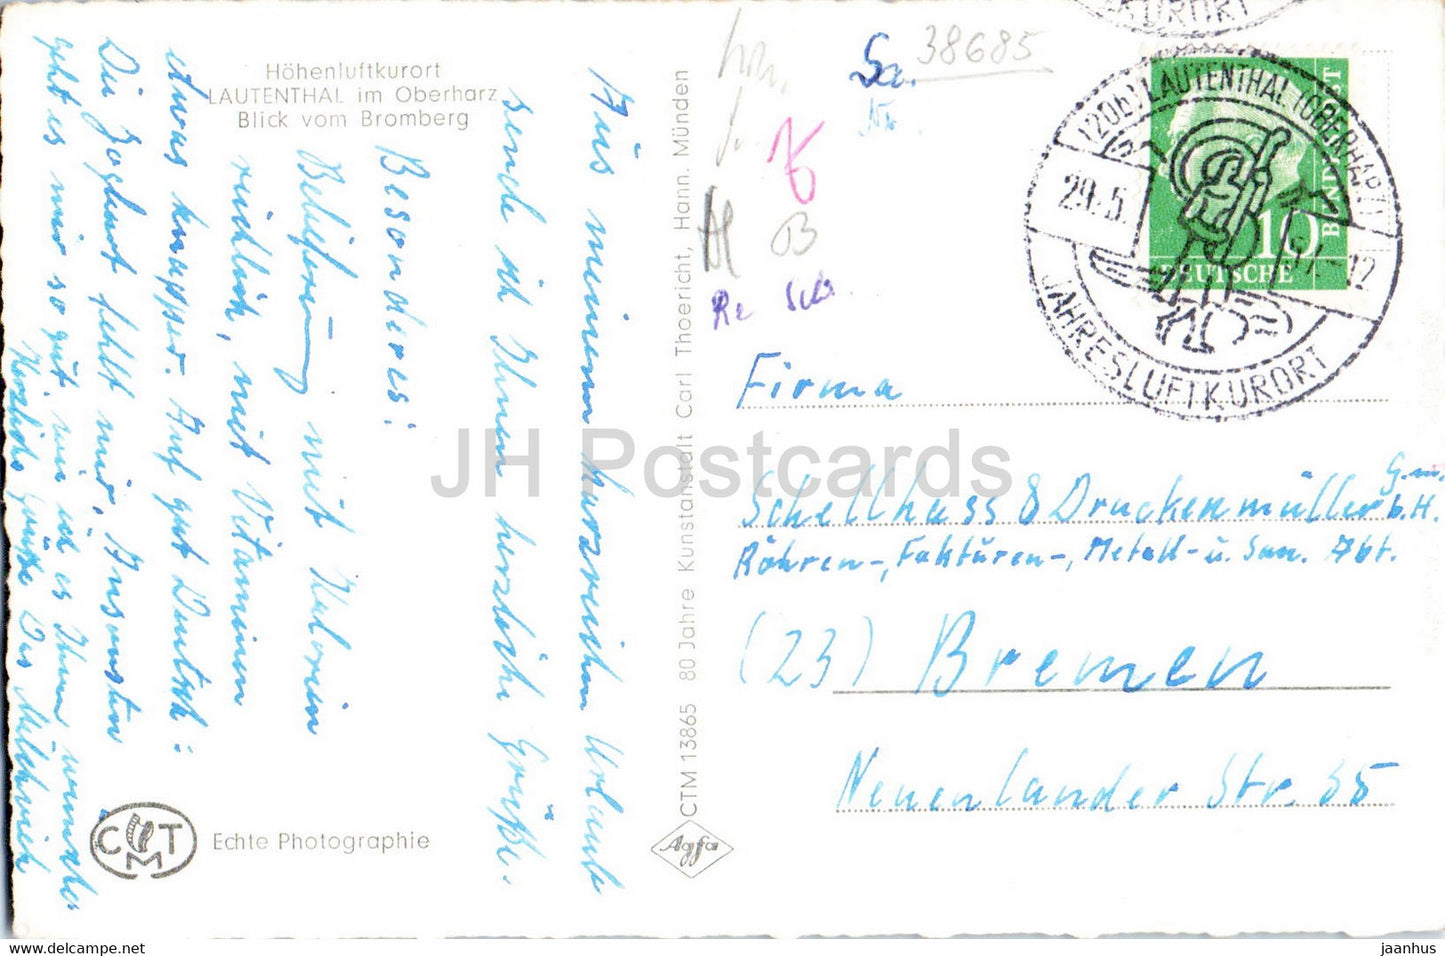 Höhenluftkurort
LAUTENTHAL im Oberharz
Blick vom Bromberg
Aus meinem kurzreichen Urlaub
sende ich Ihnen herzliche Grüße.
Besonderes:
Belieferung mit Kalorien
reichlich, mit Vitaminen
etwas knapper. Auf gut Deutsch:
Die Joghurt fehlt mir. Ansonsten
geht es mir so gut, wie ich es Ihnen wünsche
Herzliche Grüße Das Milchreich
CTM
Echte Photographie
CTM 13865 80 Jahre Kunstanstalt Carl Thoericht, Hann. Münden
Agfa
Sa. 38685
B
Re Sch.
(20b) LAUTENTHAL (OBERHARZ)
29.5.
-12
JAHRESLUFTKURORT
KURORT
10
DEUTSCHE
BUNDESPOST
Firma
Schellhass & Druckenmüller G.m.
b.H.
Röhren-, Fakturen-, Metall- u. San. Abt.
(23) Bremen
Neuenlander Str. 35
JH Postcards
www.delcampe.net
jaanhus